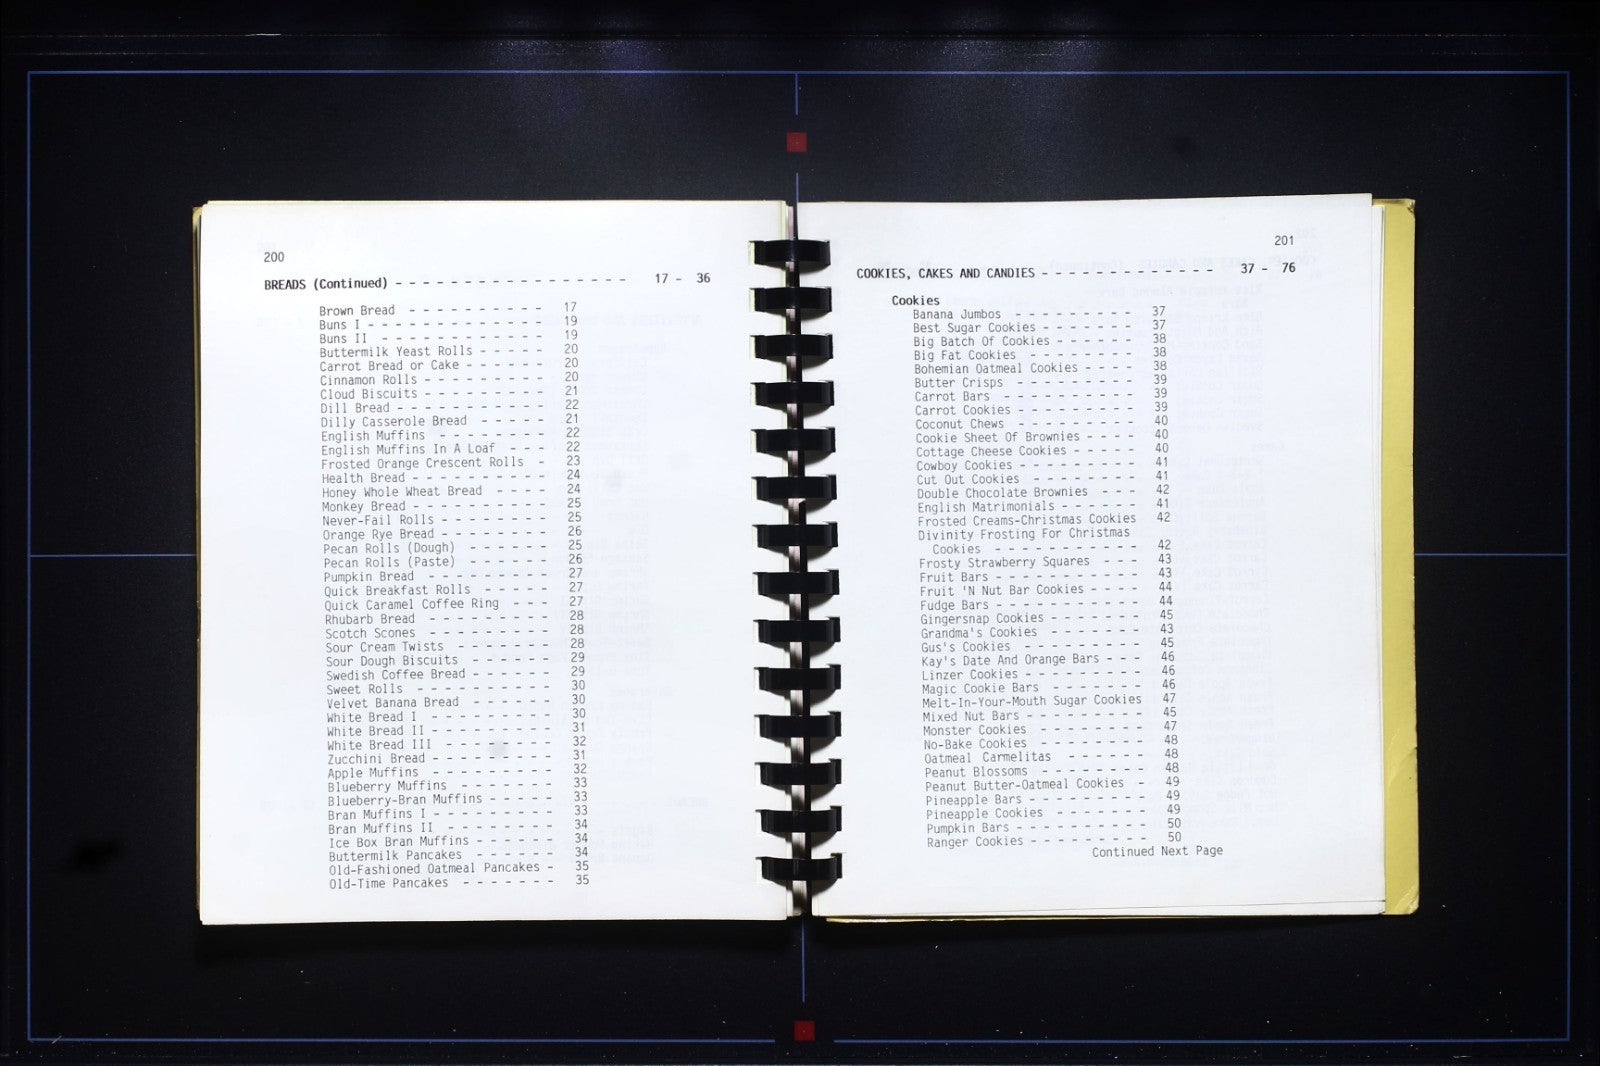 200
BREADS (Continued) - - - - - - - - - - - - - - - - - 17 - 36
Brown Bread - - - - - - - - - - 17
Buns I - - - - - - - - - - - - - 19
Buns II - - - - - - - - - - - - 19
Buttermilk Yeast Rolls - - - - - 20
Carrot Bread or Cake - - - - - - 20
Cinnamon Rolls - - - - - - - - - 20
Cloud Biscuits - - - - - - - - - 21
Dill Bread - - - - - - - - - - - 22
Dilly Casserole Bread - - - - - 21
English Muffins - - - - - - - - 22
English Muffins In A Loaf - - - 22
Frosted Orange Crescent Rolls - 23
Health Bread - - - - - - - - - - 24
Honey Whole Wheat Bread - - - - 24
Monkey Bread - - - - - - - - - - 25
Never-Fail Rolls - - - - - - - - 25
Orange Rye Bread - - - - - - - - 26
Pecan Rolls (Dough) - - - - - - 25
Pecan Rolls (Paste) - - - - - - 26
Pumpkin Bread - - - - - - - - - 27
Quick Breakfast Rolls - - - - - 27
Quick Caramel Coffee Ring - - - 27
Rhubarb Bread - - - - - - - - - 28
Scotch Scones - - - - - - - - - 28
Sour Cream Twists - - - - - - - 28
Sour Dough Biscuits - - - - - - 29
Swedish Coffee Bread - - - - - - 29
Sweet Rolls - - - - - - - - - - 30
Velvet Banana Bread - - - - - - 30
White Bread I - - - - - - - - - 30
White Bread II - - - - - - - - - 31
White Bread III - - - - - - - - 32
Zucchini Bread - - - - - - - - - 31
Apple Muffins - - - - - - - - - 32
Blueberry Muffins - - - - - - - 33
Blueberry-Bran Muffins - - - - - 33
Bran Muffins I - - - - - - - - - 33
Bran Muffins II - - - - - - - - 34
Ice Box Bran Muffins - - - - - - 34
Buttermilk Pancakes - - - - - - 34
Old-Fashioned Oatmeal Pancakes - 35
Old-Time Pancakes - - - - - - - 35
201
COOKIES, CAKES AND CANDIES - - - - - - - - - - - - - 37 - 76
Cookies
Banana Jumbos - - - - - - - - - 37
Best Sugar Cookies - - - - - - - 37
Big Batch Of Cookies - - - - - - 38
Big Fat Cookies - - - - - - - - 38
Bohemian Oatmeal Cookies - - - - 38
Butter Crisps - - - - - - - - - 39
Carrot Bars - - - - - - - - - - 39
Carrot Cookies - - - - - - - - - 39
Coconut Chews - - - - - - - - - 40
Cookie Sheet Of Brownies - - - - 40
Cottage Cheese Cookies - - - - - 40
Cowboy Cookies - - - - - - - - - 41
Cut Out Cookies - - - - - - - - 41
Double Chocolate Brownies - - - 42
English Matrimonials - - - - - - 41
Frosted Creams-Christmas Cookies 42
Divinity Frosting For Christmas
Cookies - - - - - - - - - - - 42
Frosty Strawberry Squares - - - 43
Fruit Bars - - - - - - - - - - - 43
Fruit 'N Nut Bar Cookies - - - - 44
Fudge Bars - - - - - - - - - - - 44
Gingersnap Cookies - - - - - - - 45
Grandma's Cookies - - - - - - - 43
Gus's Cookies - - - - - - - - - 45
Kay's Date And Orange Bars - - - 46
Linzer Cookies - - - - - - - - - 46
Magic Cookie Bars - - - - - - - 46
Melt-In-Your-Mouth Sugar Cookies 47
Mixed Nut Bars - - - - - - - - - 45
Monster Cookies - - - - - - - - 47
No-Bake Cookies - - - - - - - - 48
Oatmeal Carmelitas - - - - - - 48
Peanut Blossoms - - - - - - - - 48
Peanut Butter-Oatmeal Cookies - 49
Pineapple Bars - - - - - - - - - 49
Pineapple Cookies - - - - - - - 49
Pumpkin Bars - - - - - - - - - - 50
Ranger Cookies - - - - - - - - - 50
Continued Next Page